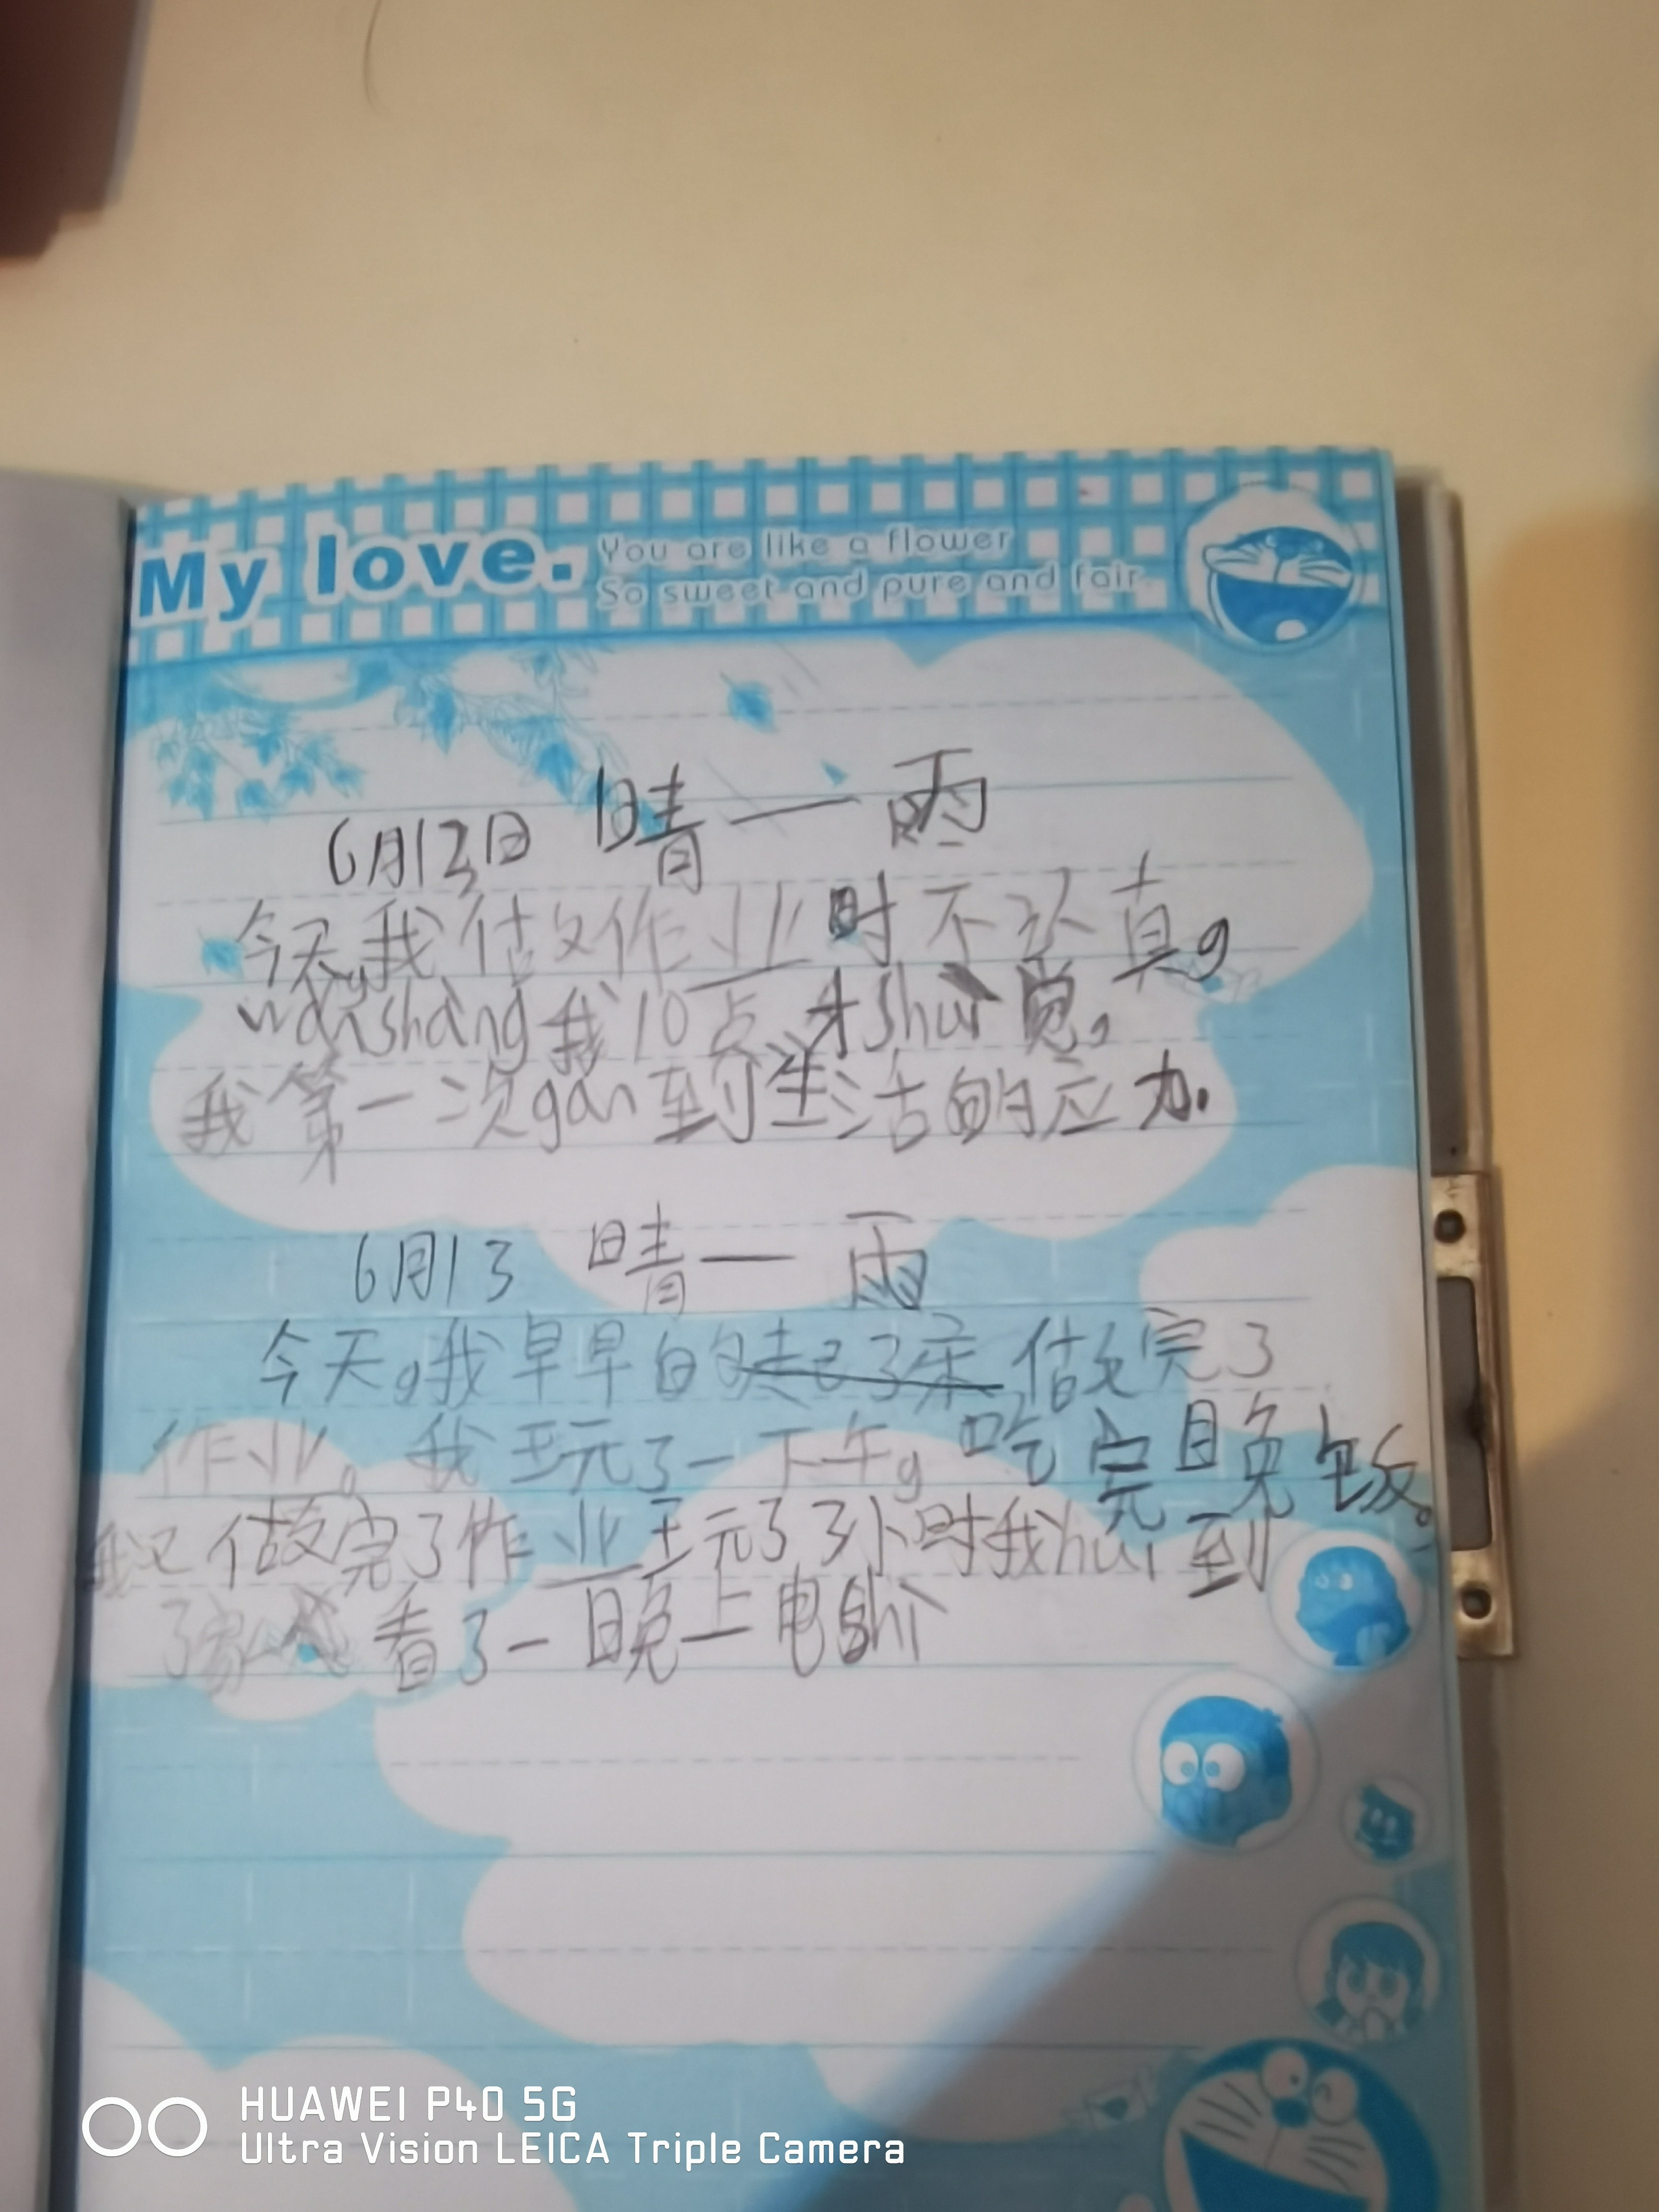 My love.
You are like a flower
So sweet and pure and fair.
6月13日 晴一雨
今天,我做作业时不认真。
wanshang我10点才shui觉。
我第一次gan到生活的应力.
6月13 晴一雨
今天,我早早的起了床做完了
作业。我玩了一下午,吃完晚饭。
我又做完了作业玩了3小时我hui到
了家 看了一晚上电shi
HUAWEI P40 5G
Ultra Vision LEICA Triple Camera